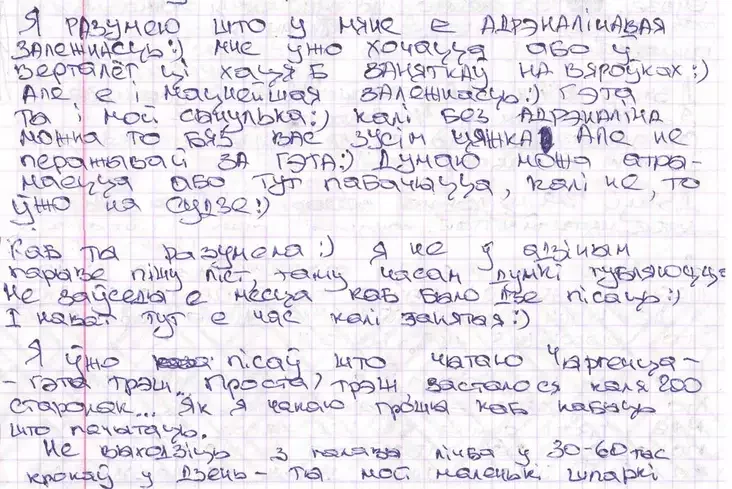 Я разумею што у мяне е АДРЭНАЛІНАВАЯ
ЗАЛЕЖНАСЦЬ:) мне ўжо хочацца або ў
верталёт ці хаця б ЗАНЯТКАЎ НА ВЯРОЎКАХ:)
Але е і мацнейшая ЗАЛЕЖНАСЦЬ:) ГЭТА
ТЫ і мой сынулька:) калі БЕЗ АДРЭНАЛІНА
можна то БЯЗ ВАС ЗУСІМ ЦЯЖКА Але не
перажывай ЗА ГЭТА:) Думаю можа атры-
маецца або ТУТ пабачыцца, калі не, то
ўжо на судзе:)
Каб ты разумела:) я не у адзіным
парыве пішу ліст, таму часам думкі губляюцца
Не заўседы е месца каб было дзе пісаць:)
І нават тут е час калі заняты:)
Я ўжо пісаў што чытаю
- гэта трэш.. Проста) трэш засталося каля 200
старонак... Як я чакаю грошы каб набыць
што пачытаць.
Не выходзіць з галавы лічба у 30-60 тыс
крокаў у дзень - ты мой маленькі шпаркі